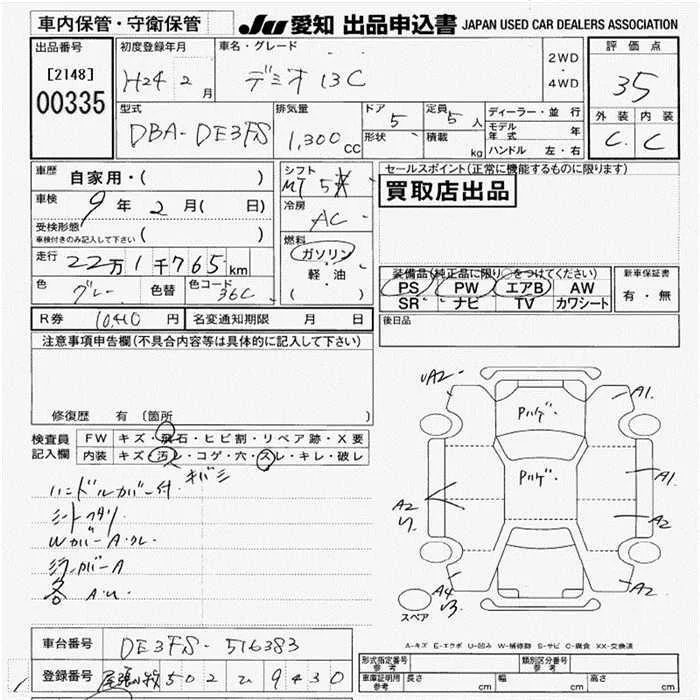 車内保管・守衛保管
JU 愛知 出品申込書 JAPAN USED CAR DEALERS ASSOCIATION
出品番号
[2148]
00335
初度登録年月
H24 2 月
車名・グレード
デミオ 13C
2WD
・
4WD
評価点
35
外装 内装
C C
型式
DBA-DE3FS
排気量
1,300 cc
ドア
5
形状
定員
5 人
積載
kg
ディーラー・並行
モデル年式 年
ハンドル 左・右
車歴
自家用・( )
車検
9年 2月( 日)
受検形態
車検付きのみ記入して下さい ( )
走行
22万1千765km
色
グレー
色替
色コード
36C
シフト
MT 5
冷房
AC
燃料
ガソリン
軽・油
( )
セールスポイント(正常に機能するものに限ります)
買取店出品
装備品(純正品に限り○をつけてください)
PS PW エアB AW
SR ナビ TV カワシート
新車保証書
有・無
後日品
R券 10,410 円 名変通知期限 月 日
注意事項申告欄(不具合内容等は具体的に記入して下さい)
修復歴 有 〔箇所
検査員
記入欄
FW キズ・飛石・ヒビ割・リペア跡・X要
内装 キズ・汚レ・コゲ・穴・スレ・キレ・破レ
キバミ
ハンドルカバー付
シートヘタリ
UA2
A1
Pハゲ
Pハゲ
A1
A2
A2
A4
A2
スペア
A-キズ E-エクボ U-凹み W-補修跡 S-サビ C-腐食 XX-交換済
車台番号 DE3FS-516383
登録番号 尾張小牧 502 ひ 9430
形式指定番号
参考
類別区分番号
参考
車庫証明用
参考
長さ cm 幅 cm 高さ cm